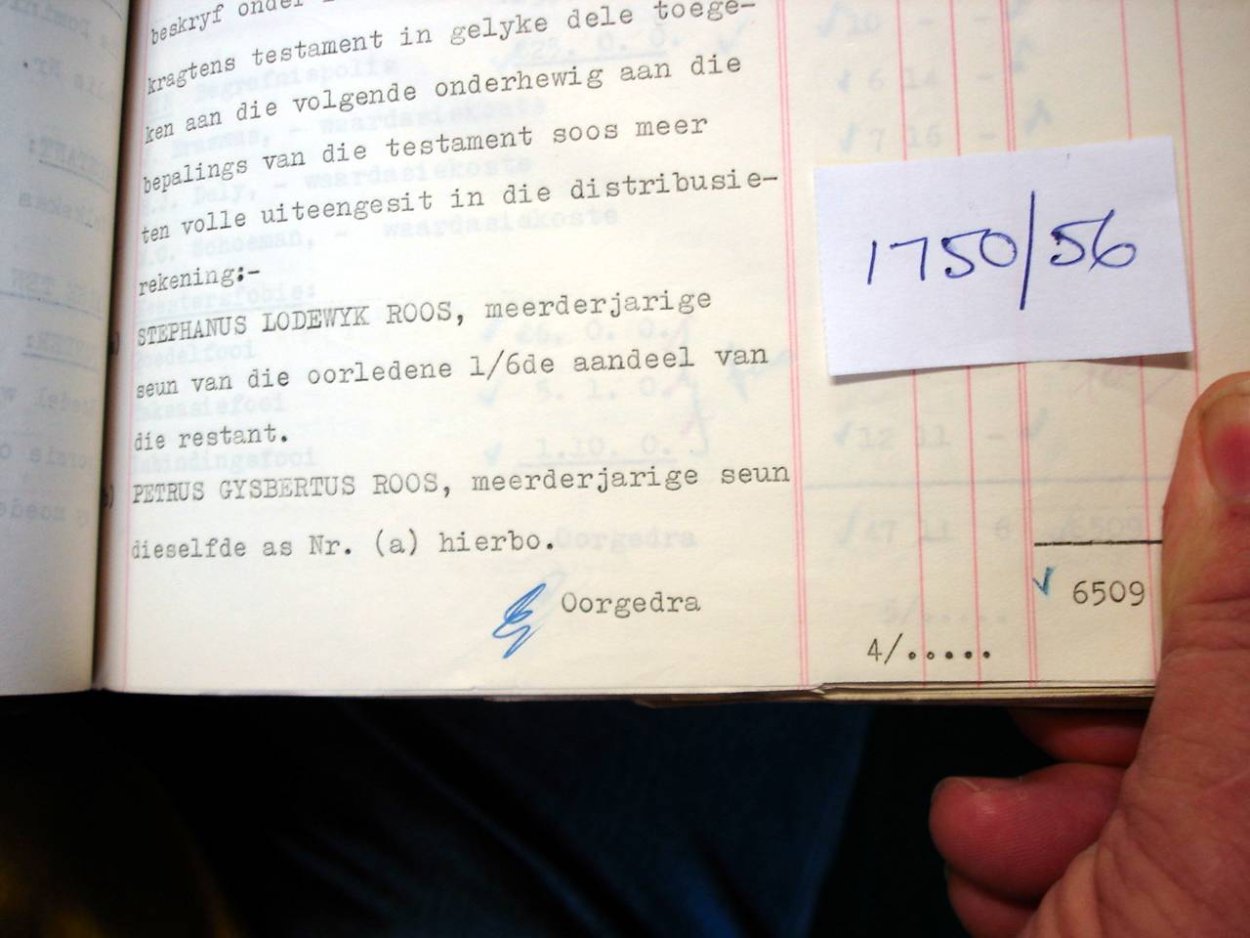 beskryf onder
kragtens testament in gelyke dele toege-
ken aan die volgende onderhewig aan die
bepalings van die testament soos meer
ten volle uiteengesit in die distribusie-
rekening:-
STEPHANUS LODEWYK ROOS, meerderjarige
seun van die oorledene 1/6de aandeel van
die restant.
PETRUS GYSBERTUS ROOS, meerderjarige seun
dieselfde as Nr. (a) hierbo.
Oorgedra
6509
4/.....
1750/56